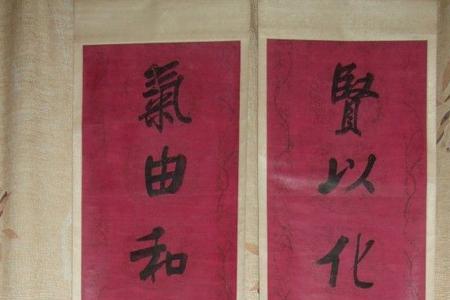 賢以化
氣由和